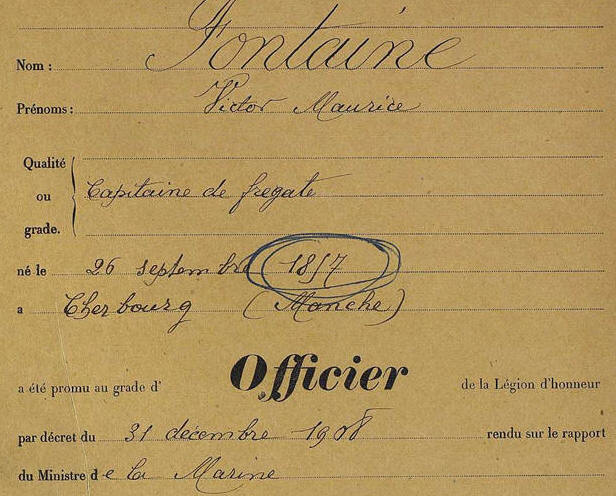 Nom : Fontaine
Prénoms : Victor Maurice
Qualité
ou Capitaine de fregate
grade.
né le 26 septembre 1857
a Cherbourg (Manche)
a été promu au grade d' Officier de la Légion d'honneur
par décret du 31 décembre 1908 rendu sur le rapport
du Ministre de la Marine